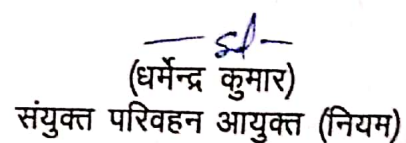 — sd —
(धर्मेन्द्र कुमार)
संयुक्त परिवहन आयुक्त (नियम)